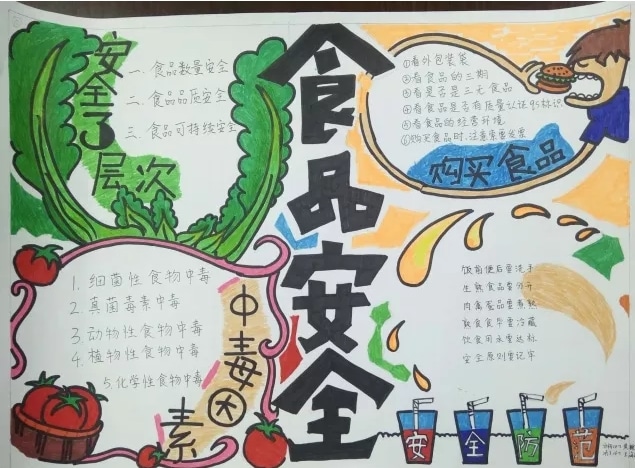 食品安全
安全3层次
一、食品数量安全
二、食品品质安全
三、食品可持续安全
①看外包装袋
②看食品的三期
③看是否是三无食品
④看食品是否有质量认证QS标识
⑤看食品的经营环境
⑥购买食品时,注意索要发票
购买食品
中毒因素
1. 细菌性食物中毒
2. 真菌毒素中毒
3. 动物性食物中毒
4. 植物性食物中毒
5. 化学性食物中毒
饭前便后要洗手
生熟食品要分开
肉禽蛋品要煮熟
熟食食毕要冷藏
饮食用水要达标
安全原则要记牢
安全防范